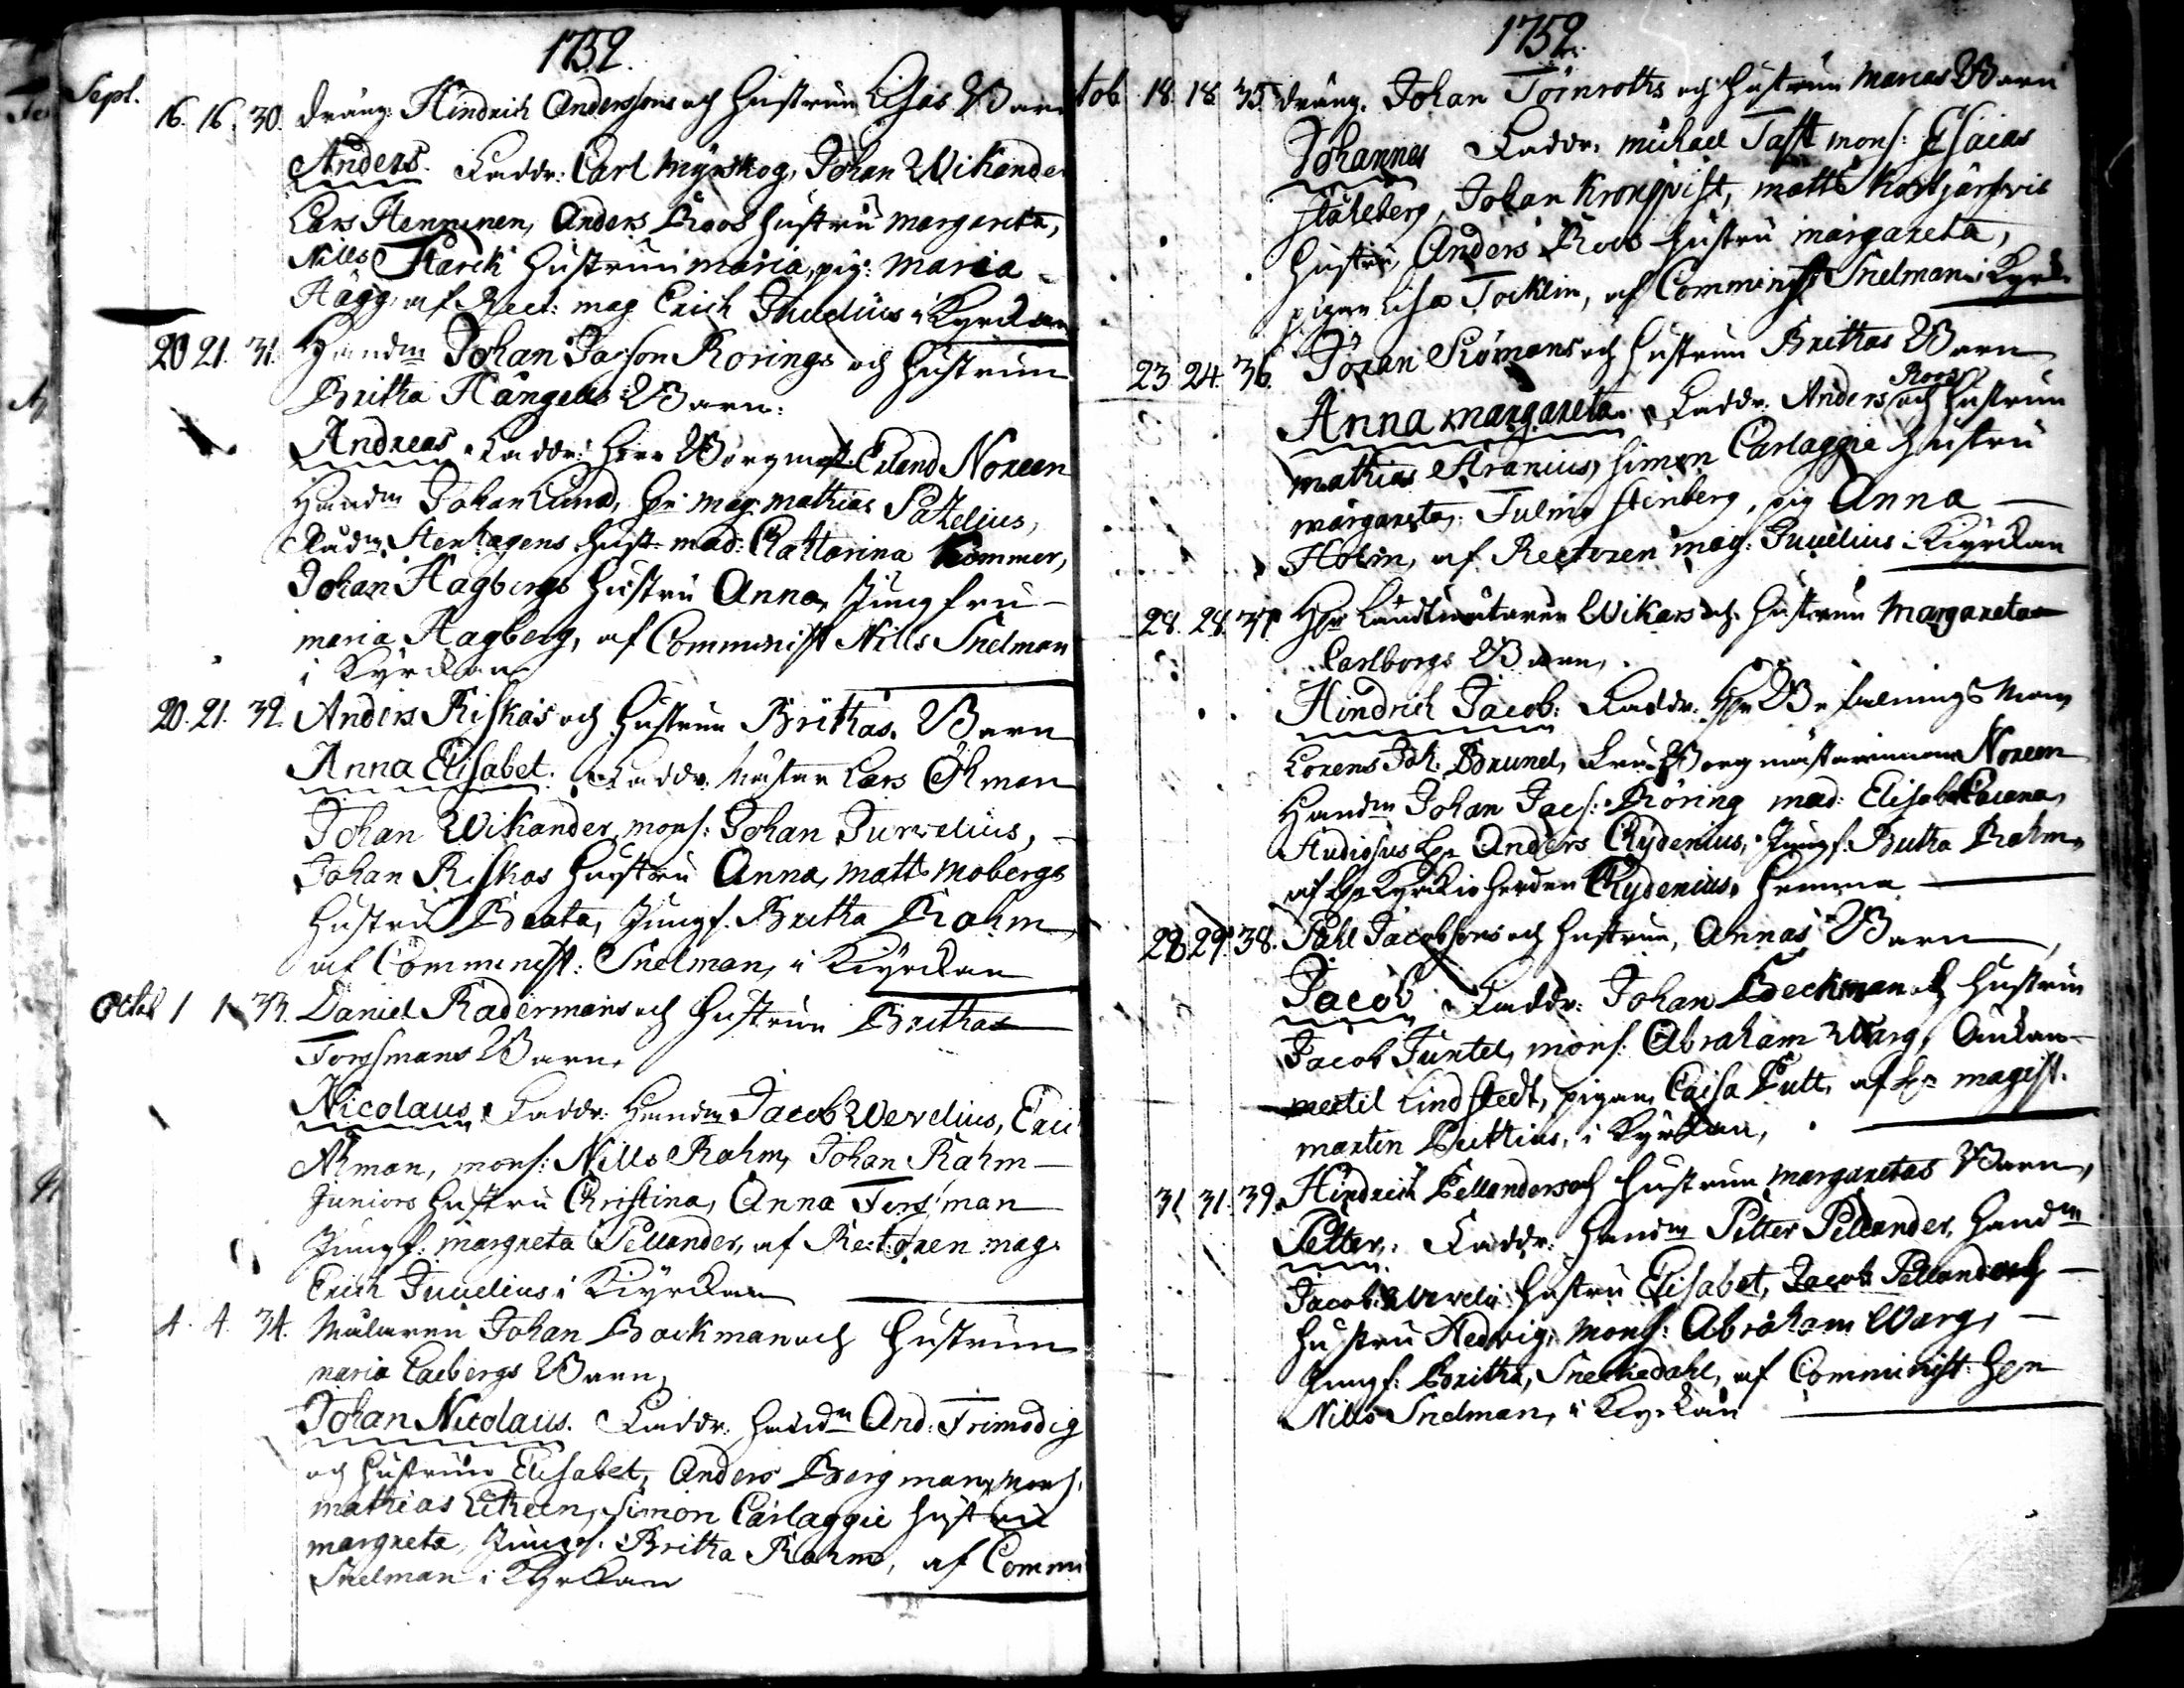 1752.
Sept.
16. 16. 30. dräng: Hindrich Anderssons och hustrun Lisas Barn
Anders. Faddr: Carl Myrskog, Johan Wikander
Lars Henninen, Anders Roos hustru Margareta,
Nills Starck hustru Maria, pig: Maria
Hägg, af Rect: mag Erich Juvelius i Kyrckan
20 21. 31. Handm Johan Jacson Rorings och hustrun
Britha Hångells Barn.
Andreas. Faddr: Herr Borgmäst: Erland Noreen
Handm Johan Lund, Hr mag: Mathias Pazelius,
Rådm Stenhagens hust: mad: Cattarina Kommer,
Johan Hagbergs hustru Anna, Jungfru
Maria Hagberg, af Comminist Nills Snelman
i Kyrckan
20. 21. 32. Anders Riskas och hustrun Brithas. Barn
Anna Elisabet. Faddr: Mäster Lars Öhman
Johan Wikander, mons: Johan Jurvelius,
Johan Riskas hustru Anna, Matts Mobergs
hustru Beata, Jungf. Britha Rahm,
af Comminist: Snelman, i Kiyrckan
Octob 1 1 33. Daniel Radermans och hustrun Brithas
Forssmans Barn.
Nicolaus. Faddr: Handm Jacob Wevelius, Eric
Åhman, mons: Nills Rahm, Johan Rahm
Juniors hustru Christina, Anna Forsman
Jungf: Margreta Pellander, af Rectoren mag:
Erich Juvelius i Kiyrckan
4. 4. 34. Målaren Johan Backman och hustrun
Maria Caebergs Barn,
Johan Nicolaus. Faddr. Handm And: Frimodig
och hustrun Elisabet, Anders Bergman, Mons.
Mathias Litheen, Simon Carlaggie hustru
Margreta, Jungf. Britha Rahm, af Commi
Snelman i Kyrckan
1752.
tob 18. 18. 35. dräng. Johan Törnroths och hustrun Marias Barn
Johannes Faddr. Michael Tafft mons: Esaias
Ståhlberg, Johan Kronqvist, Matts
hustru, Anders Roos hustru Margareta,
pigan Lisa Tocklin, af Comminist Snelman i Kyrck
23. 24. 36. Jöran Römans och hustrun Brithas Barn
Anna Margareta. Faddr. Anders Roos och hustrun
Mathias Aranius, Simon Carlaggie hustru
Margareta, Stenberg, pig Anna
Holm, af Rectoren mag: Juvelius i Kiyrckan
28. 28. 37 Hr Landtmätaren Wikars och hustrun Margareta
Carlborgs Barn,
Hindrich Jacob. Faddr. Hr Befalnings Man
Lorens Joh. Brunel, Fru Borgmästarinnan Noreen
Handm Johan Jacs: Röring mad: Elisabet Cacana,
Studiosus Hr Anders Chydenius, Jungf. Britha Rahm,
af Hr Kyrckioherden Chydenius, hemma
28 29. 38. Påhl Jacobssons och hustrun, Annas Barn,
Jacob Faddr: Johan Beckman och hustrun
Jacob Funtel, mons: Abraham Warg, Enckan
Mertel Lindstedt, pigan Caisa Putt, af Hr magist.
Marten Puttius, i Kyrckan,
31. 31. 39. Hindrich Pellanders och hustrun Margaretas Barn,
Petter,. Faddr: Handm Petter Pellander, Handm
Jacob Wevelii hustru Elisabet, Jacob Pellanders
hustru Hedvig, Mons: Abraham Warg,
Jungf: Britha, Sneckedahl, af Comminist: Hern
Nills Snelman, i Kyrckan